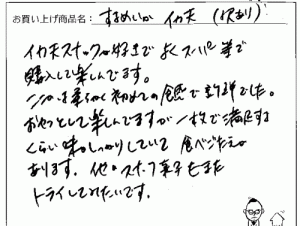 お買い上げ商品名：するめいか イカ天 (訳あり)
イカ天スナックが好きでよくスーパー等で
購入して楽しんでます。
こんな柔らかく初めての食感で新鮮でした。
おやつとして楽しんでますが一枚で満足する
くらい味がしっかりしていて食べごたえが
あります。他のスナック菓子もまた
トライしてみたいです。